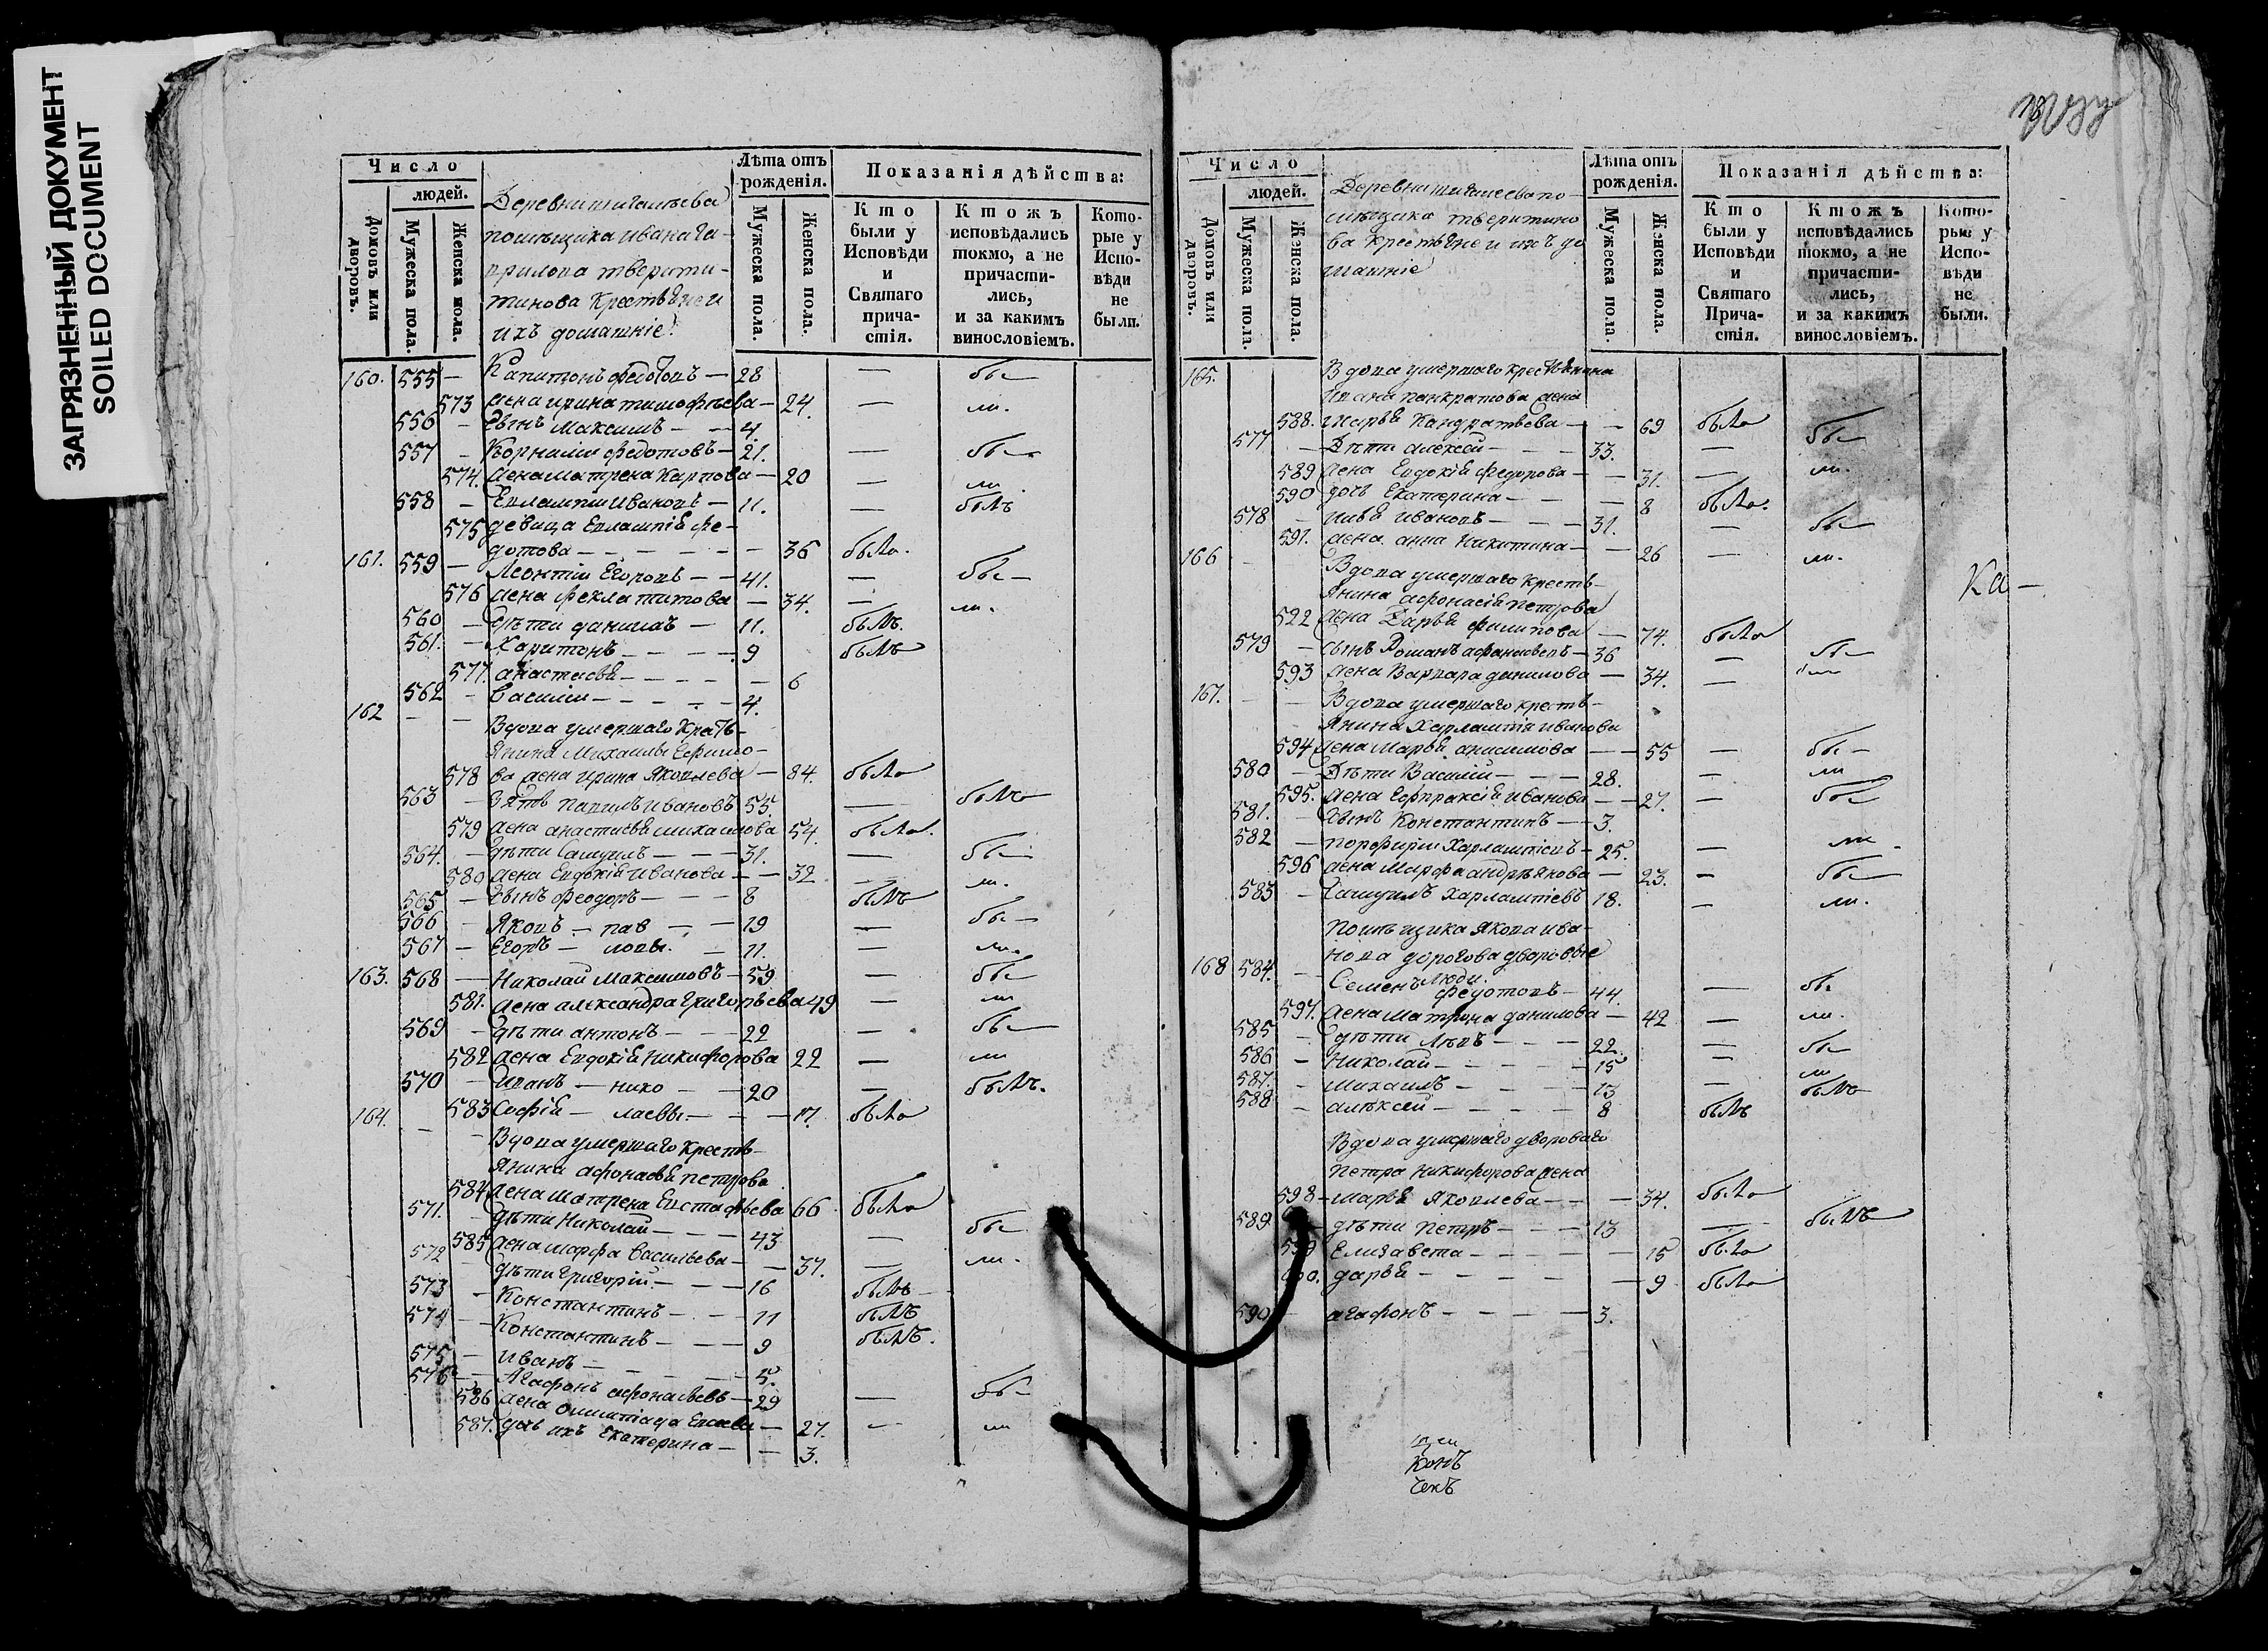 ЗАГРЯЗНЕННЫЙ ДОКУМЕНТ
SOILED DOCUMENT
Число
людей.
Домовъ или дворовъ.
Мужеска пола.
Женска пола.
Деревни
помѣщика Ивана Га-
врилова Тверити-
тинова крестьяне и
ихъ домашніе
Лѣта отъ рожденія.
Мужеска пола.
Женска пола.
Показанія дѣйства:
Кто были у Исповѣди и Святаго причастія.
Ктожъ исповѣдались токмо, а не причастились, и за какимъ винословіемъ.
Которые у Исповѣди не были.
160. 555 — Капитонъ Федотовъ — 28 — бы—
573 жена Ирина Тимофѣева — 24. — ли.
556 — сынъ Максимъ — — 4.
557 — Корнилий Федотовъ — 21. — бы—
574. жена Матрена Карпова — 20 — ли.
558 — Евлампий Ивановъ — 11. — былъ
575 девица Евлампія Фе-
дотова — — — — — 36 была.
161. 559 — Леонтий Егоровъ — — 41. — бы—
576 жена Фекла Титова — 34. — ли.
560 — дѣти Данилъ — 11. былъ.
561. — Харитонъ — — — — 9 былъ
577. Анастасья — — — — — 6
562 — Василии — — — — — 4.
162 — — Вдова умершаго кресть-
янина Михаилы Ефимо-
578 ва жена Ирина Яковлева — 84. была
563 — зять Павилъ Ивановъ 55. — былъ
579 жена Анастасья Михаилова 54. была.
564. — дѣти Самуилъ — — — 31. — бы—
580 жена Евдокія Иванова — — 32 — ли.
565 — сынъ Феодоръ — — — 8 былъ
566 — Яковъ — пав — — 19 — бы—
567 — Егоръ — ловы. — 11. — ли.
163. 568 — Николай Максимовъ — 59 — бы
581. жена Александра Григорьева 49 — ли
569 — дѣти Антонъ — — — 22 — бы—
582 жена Евдокія Никифорова 22 — ли
570 — Иванъ — нико — — 20 — былъ.
164. 583 Софія — лаевы — — — 17. была
— — Вдова умершаго кресть-
янина Афонасья Петрова
584 жена Матрена Евстафьева 66 была
571. — дѣти Николай — — — 43 — бы
585 жена Марфа Васильева — — 37. — ли.
572 — дѣти Григорій — — — 16 былъ—
573 — Константинъ — — — 11 былъ
574 — Константинъ — — — 9 былъ.
575 — Иванъ — — — — — 5.
576 — Агафонъ Афонасьевъ — 29 — бы—
586 жена Олимпіада — 27. — ли
587. дочь ихъ Екатерина — — 3.
Число
людей.
Домовъ или дворовъ.
Мужеска пола.
Женска пола.
Деревни по-
мѣщика Тверитино
ва крестьяне и ихъ до
машніе
Лѣта отъ рожденія.
Мужеска пола.
Женска пола.
Показанія дѣйства:
Кто были у Исповѣди и Святаго Причастія.
Ктожъ исповѣдались токмо, а не причастились, и за какимъ винословіемъ.
Которые у Исповѣди не были.
165. Вдова умершаго крестьянина
Ивана Панкратова жена
588. Марья Кандратьева — — 69 была
577 — Дѣти Алексей — — — 33. — бы—
589 жена Евдокія Федорова — — 31. — ли.
590 дочь Екатерина — — — 8 была.
578 — Илья Ивановъ — — — 31. — бы—
591. жена Анна Никитина — — 26 — ли.
166 — Вдова умершаго кресть-
янина Афонасія Петрова
Ка —
592 жена Дарья Филипова — 74. была
579 — сынъ Романъ Афонасьевъ — 36 — бы—
593 жена Варвара Данилова — 34. — ли
167. — — Вдова умершаго кресть-
янина Харлампія Иванова
594 жена Марья Анисимова — — 55 — бы—
580 — Дѣти Василій — — — 28. — ли
595. жена Евпраксія Иванова — — 27. — бы
581. — сынъ Константинъ — — 3.
582 — Порфирии Харлампіевъ — 25. — ли.
596 жена Марфа Андрѣянова — 23. — бы—
583 — Самуилъ Харлампіевъ 18. — ли.
Помѣщика Якова Ива-
нова Дорогова дворовые
люди.
168 584. — Семенъ Федотовъ — 44. — бы
597. жена Матрена Данилова — 42 — ли.
585 — дѣти Левъ — — — 22. — бы—
586 — Николай — — — — — 15 — ли
587. — Михаилъ — — — — 13 — былъ
588 — Алѣксей — — — — 8 былъ
Вдова умершаго двороваго
Петра Никифорова жена
598 — Марья Яковлева — — — 34. была
589. — дѣти Петръ — — — 13 — былъ
599 Елизавета — — — — — 15 была
600. Дарья — — — — — 9 была
590 — Агафонъ — — — — 3.